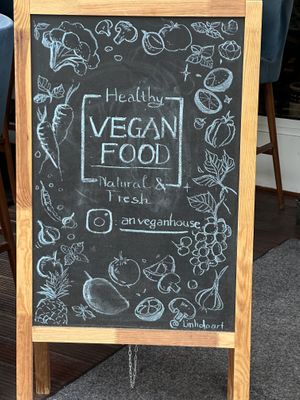 Healthy
VEGAN
FOOD
Natural &
Fresh
anveganhouse